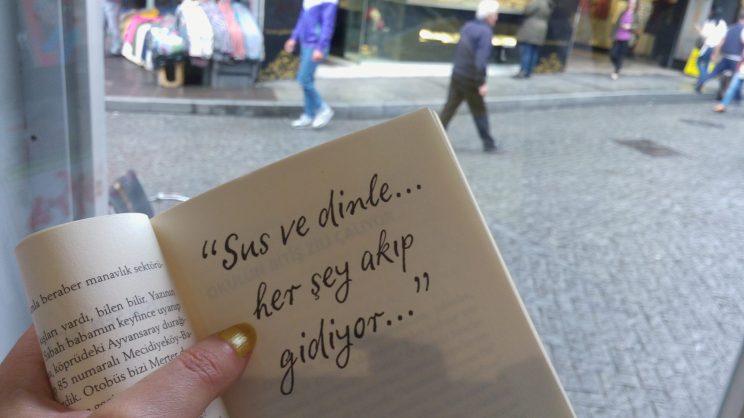 “Sus ve dinle...
her şey akıp
gidiyor...”
OKULUN BİTİŞ ZİLİ ÇALIYOR
nla beraber manavlık sektörü-
ağları vardı, bilen bilir. Yazının
Sabah babamın keyfince uyanıp
köprüdeki Ayvansaray durağı-
85 numaralı Mecidiyeköy-Ba-
dik. Otobüs bizi Merter